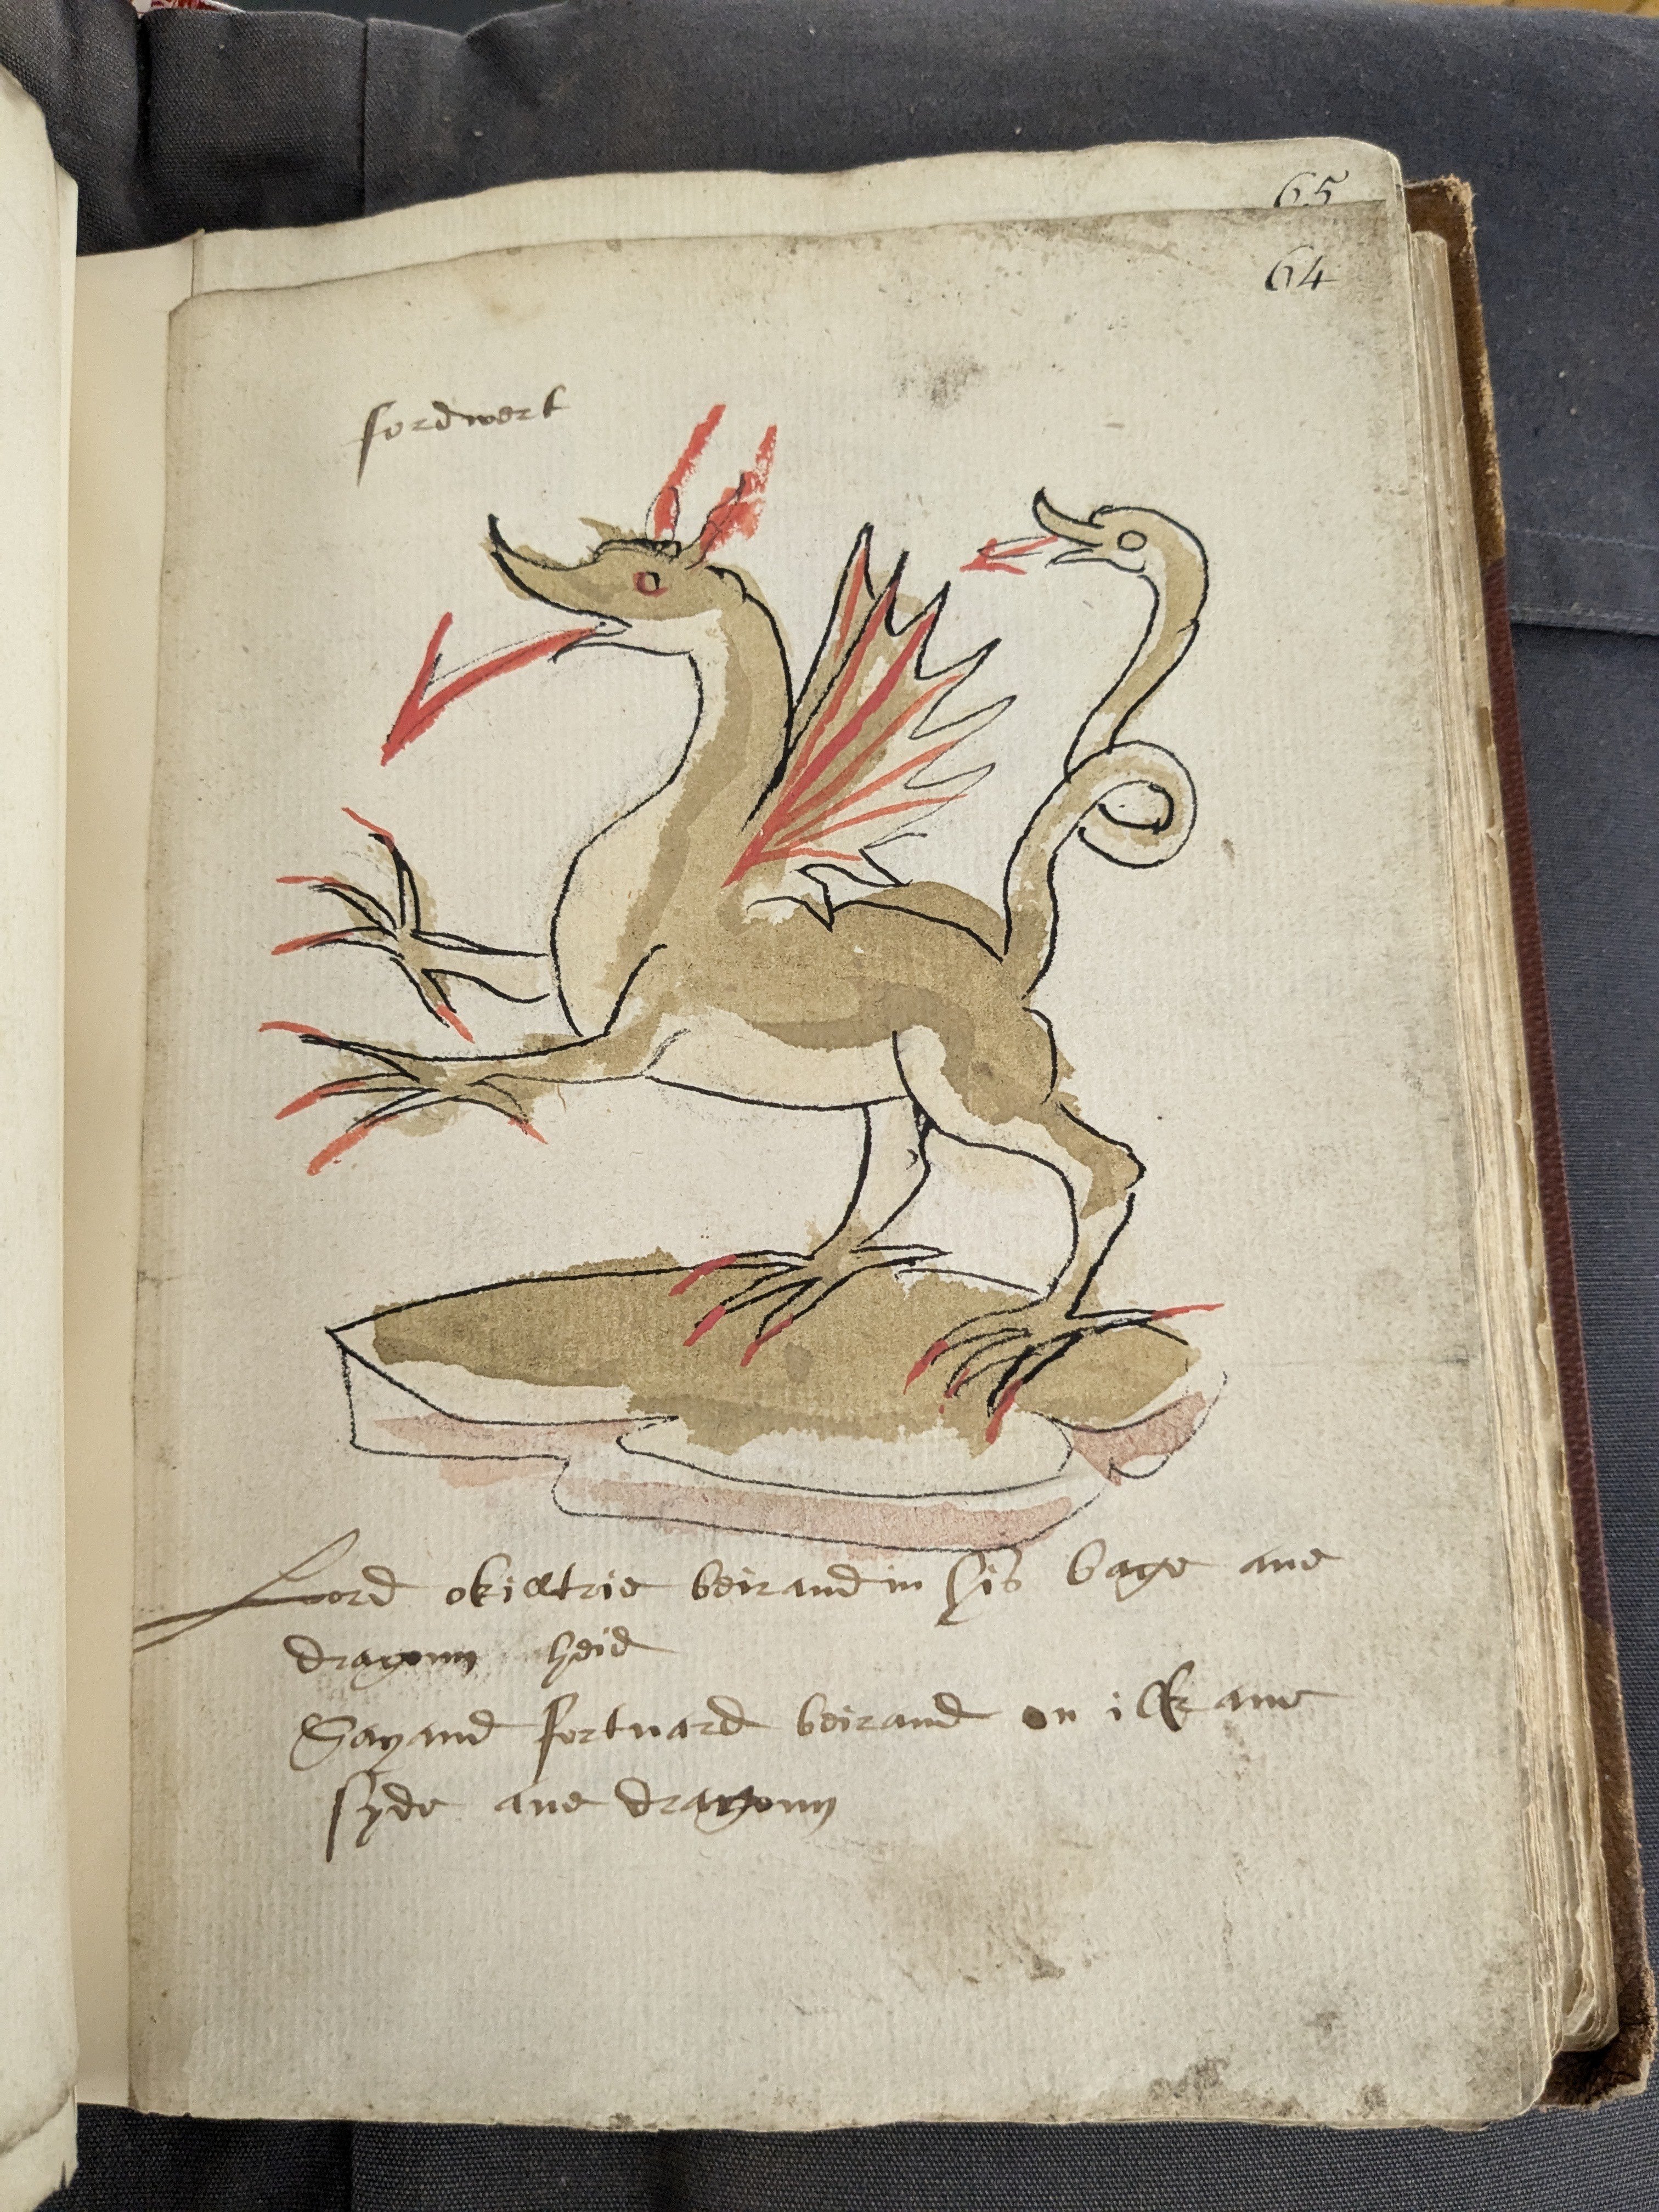 65
64
fordwert
Lord okiltrie beirand in his bage ane
dragoun heid
Sayand fortuard beirand on ilk ane
syde ane dragoun